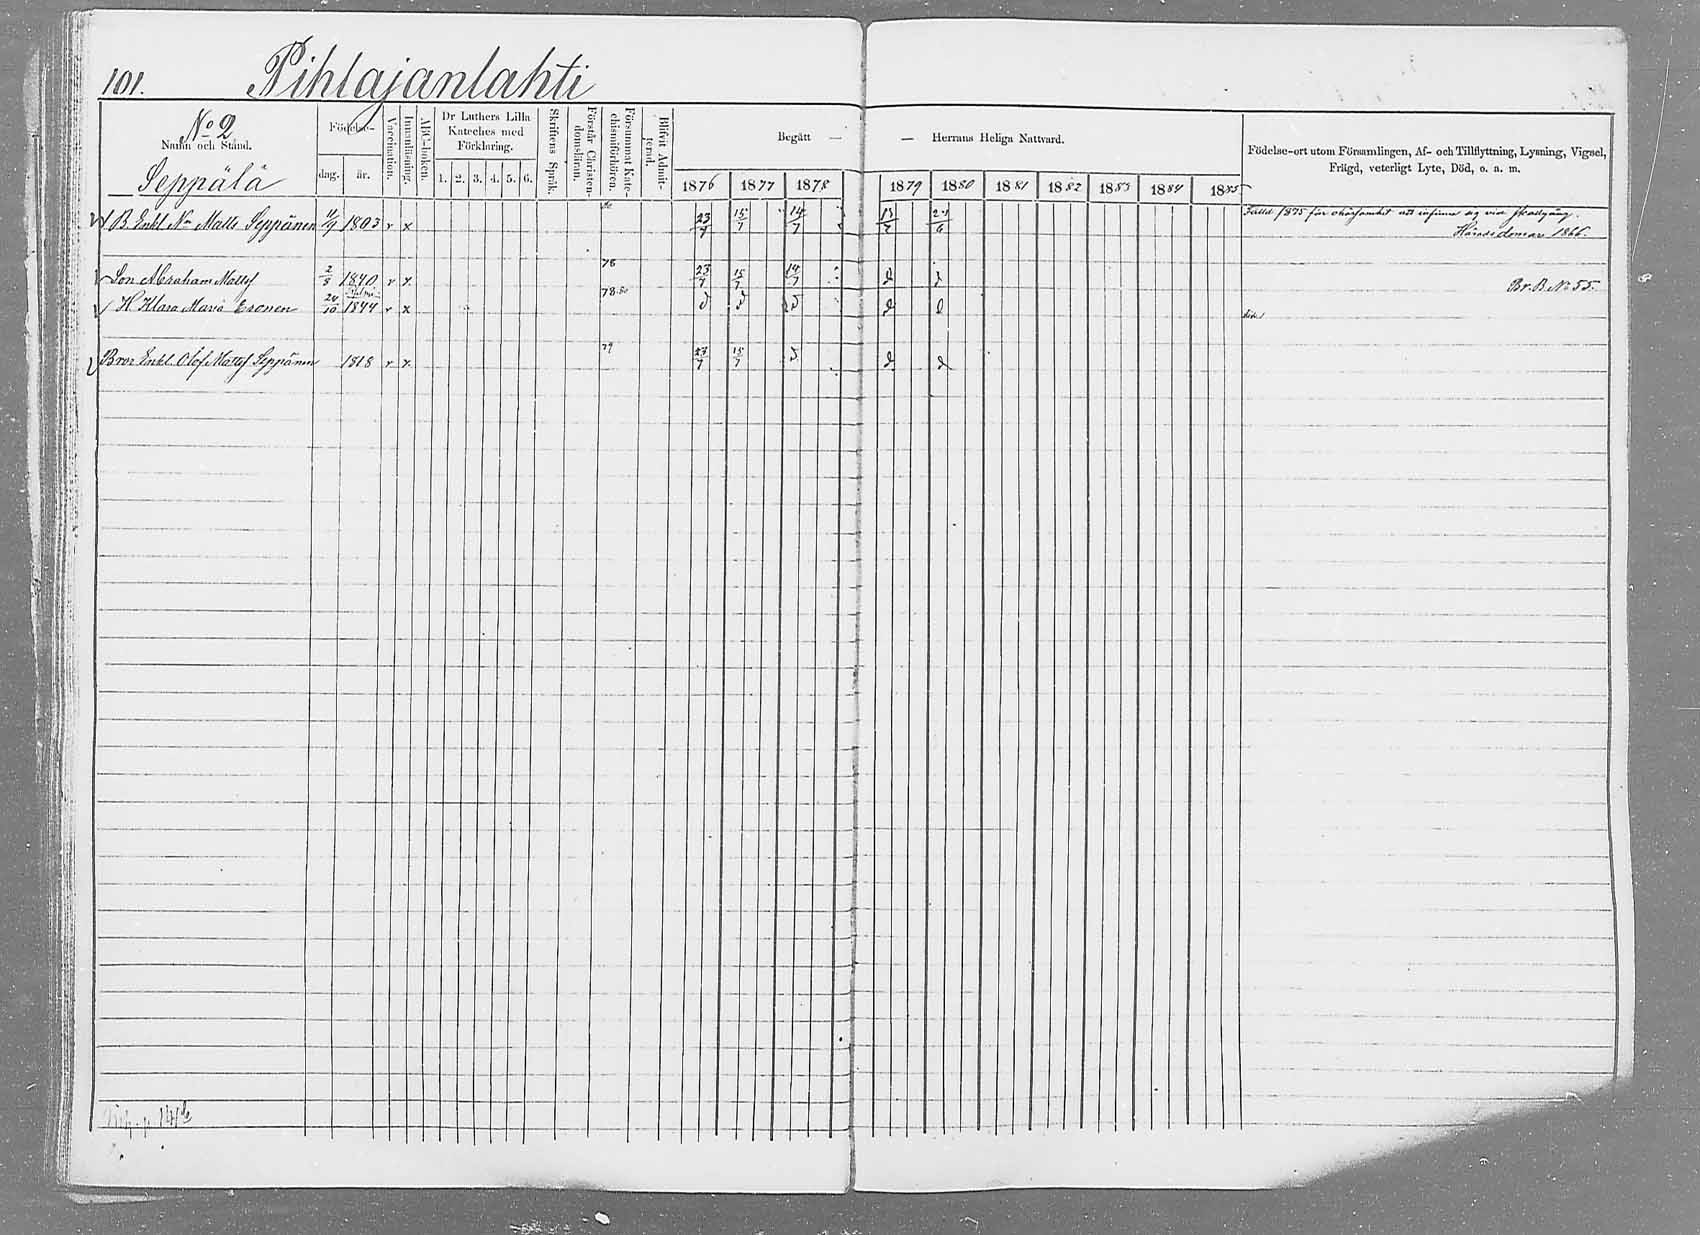 101. Pihlajanlahti
No 2
Namn och Stånd.
Seppälä
Födelse-
dag. år.
Vaccination.
Innanläsning.
ABC-boken.
Dr Luthers Lilla
Kateches med
Förklaring.
1. 2. 3. 4. 5. 6.
Skriftens Språk.
Förstår Christen-
domsläran.
Försummat Kate-
chismiförhören.
Blifvit Admit-
terad.
Begått — — Herrans Heliga Nattvard.
1876 1877 1878 1879 1880 1881 1882 1883 1884 1885
Födelse-ort utom Församlingen, Af- och Tillflyttning, Lysning, Vigsel,
Frägd, veterligt Lyte, Död, o. a. m.
B. Enkl. Matts Seppänen 1803 v x 23/7 15/7 14/7 Fälld 1875 för ohörsamhet att infinna sig vid skallgång.
Häradsdomare 1866.
Son Abraham Matts 2/3 1840 v x 78 23/7 15/7 14/7 d d Br. B. No 55.
H. Klara Maria Eronen 24/10 1844 v x 78.80 d d d d d
Bror Enkl. Olof Matts Seppänen 1818 v x 79 23/7 15/7 d d d